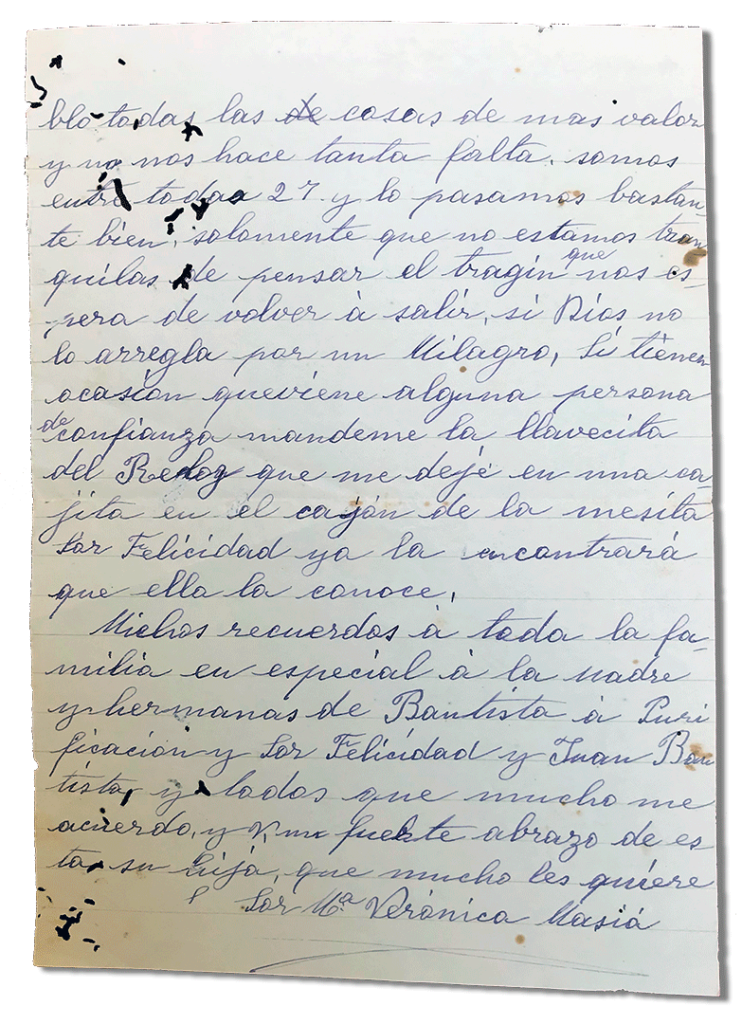 blo todas las de cosas de mas valor
y no nos hace tanta falta. somos
entre todas 27. y lo pasamos bastan-
te bien, solamente que no estamos tran
quilas de pensar el tragin que nos es-
pera de volver à salir, si Dios no
lo arregla por un Milagro, Si tienen
ocasión que viene alguna persona
de confianza mandeme la llavecita
del Reloj que me dejé en una ca-
jita en el cayón de la mesita
Sor Felicidad ya la encontrará
que ella la conoce,
Michos recuerdos à toda la fa-
milia en especial à la Madre
y hermanas de Bautista à Puri
ficación y Sor Felicidad y Juan Bau
tista, y todos que mucho me
acuerdo, y fuerte abrazo de es
ta su hija, que mucho les quiere
Sor Mª Verónica Masiá